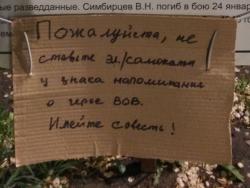 ые разведданные. Симбирцев В.Н. погиб в бою 24 январ
Пожалуйста, не
ставьте эл/самокаты
у знака напоминания
о герое ВОВ.
Имейте совесть!